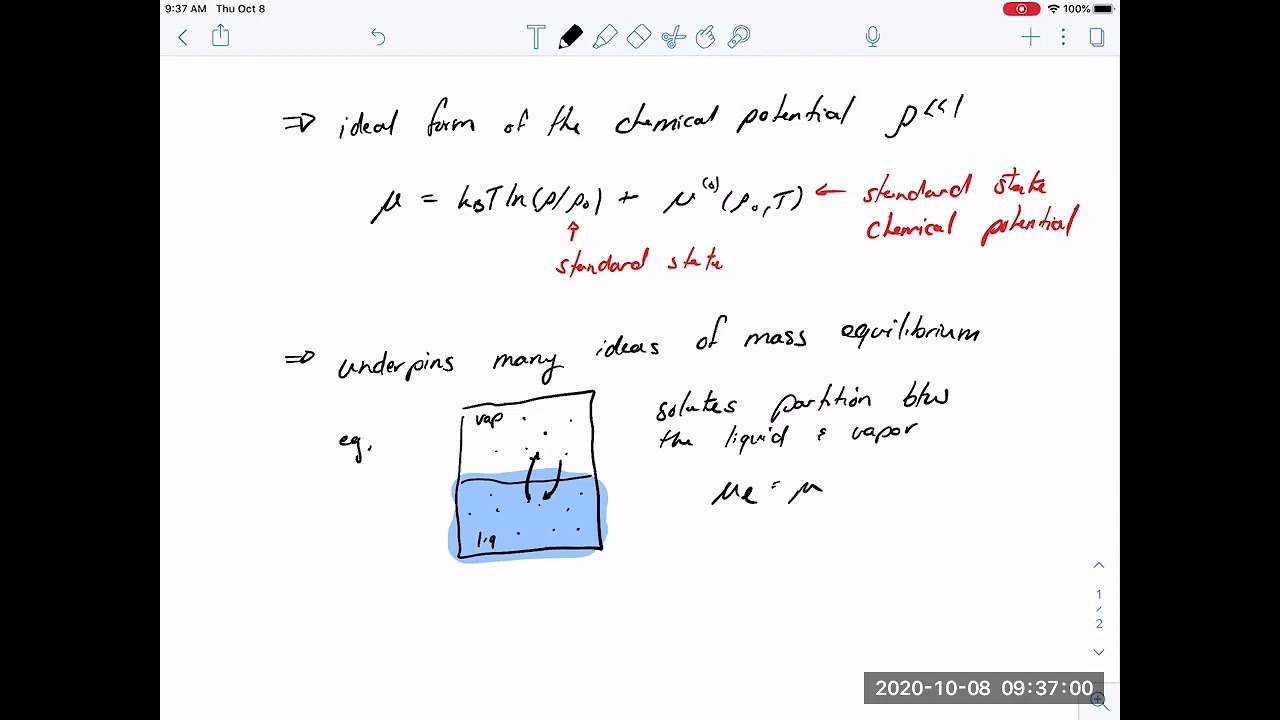 9:37 AM Thu Oct 8
100%
T
⇒ ideal form of the chemical potential ρ<<1
μ = k_BT ln(ρ/ρ₀) + μ^(0)(ρ₀,T) ← standard state
chemical potential
↑
standard state
⇒ underpins many ideas of mass equilibrium
eg.
vap
liq
solutes partition btw
the liquid & vapor
μ_l = μ
1
/
2
2020-10-08 09:37:00